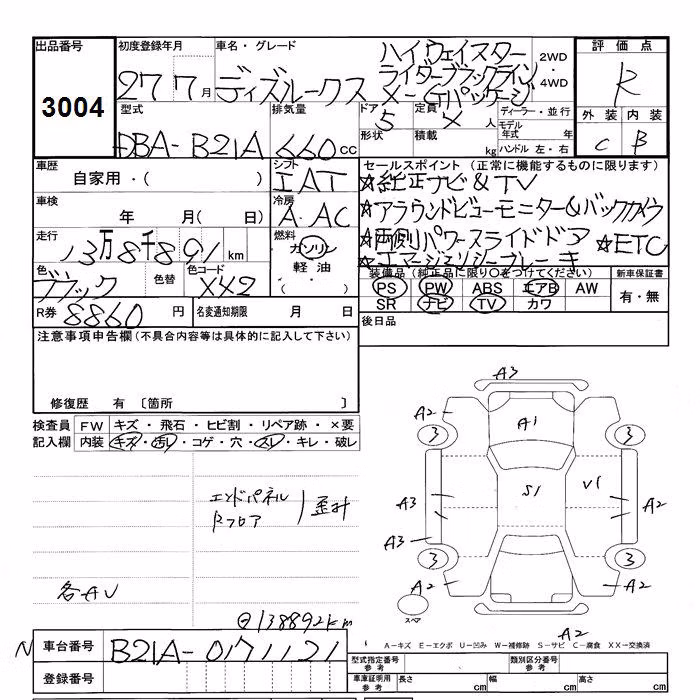 出品番号
3004
初度登録年月
27 7月
車名・グレード
ディズルークス
ハイウェイスター
ライダーブラックライン
X-Gパッケージ
2WD
・
4WD
評価点
R
外装 内装
C B
型式
DBA-B21A
排気量
660cc
ドア 5
形状
定員 4 人
積載 kg
ディーラー・並行
モデル
年式 年
ハンドル 左・右
車歴
自家用・( )
シフト
IAT
車検
年 月( 日)
冷房
A.AC
走行
13万8千891km
燃料
ガソリン
軽油
( )
色
ブラック
色替
色コード
X42
R券 8860円
名変通知期限 月 日
セールスポイント(正常に機能するものに限ります)
☆純正ナビ&TV
☆アラウンドビューモニター&バックカメラ
☆両側パワースライドドア ☆ETC
☆エマージェンシーブレーキ
装備品(純正品に限り○をつけてください)
PS PW ABS エアB AW
SR ナビ TV カワ
新車保証書
有・無
後日品
注意事項申告欄(不具合内容等は具体的に記入して下さい)
修復歴 有 〔箇所 〕
検査員
記入欄
FW キズ・飛石・ヒビ割・リペア跡・×要
内装 キズ・汚レ・コゲ・穴・スレ・キレ・破レ
エンドパネル
Rフロア
歪計
各AU
⊖138892km
A3
A2
A1
3
3
S1
V1
A3
A2
A3
3
3
A2
A2
スペア
A2
A-キズ E-エクボ U-凹み W-補修跡 S-サビ C-腐食 XX-交換済
N 車台番号 B21A-0171121
登録番号
型式指定番号
参考
類別区分番号
参考
車庫証明用
参考
長さ cm
幅 cm
高さ cm